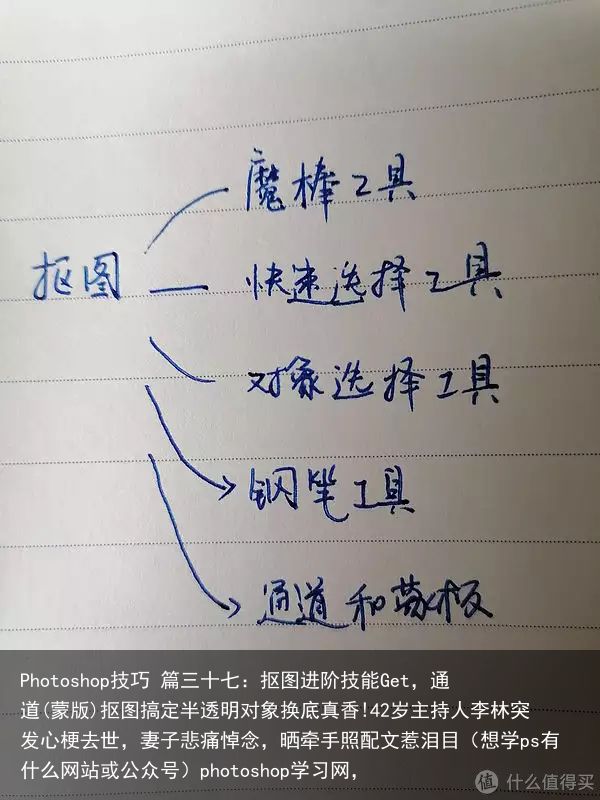 魔棒工具
抠图
快速选择工具
对象选择工具
钢笔工具
通道和蒙板
Photoshop技巧 篇三十七：抠图进阶技能Get，通
道(蒙版)抠图搞定半透明对象换底真香!42岁主持人李林突
发心梗去世，妻子悲痛悼念，晒牵手照配文惹泪目（想学ps有
什么网站或公众号）photoshop学习网，
值 什么值得买